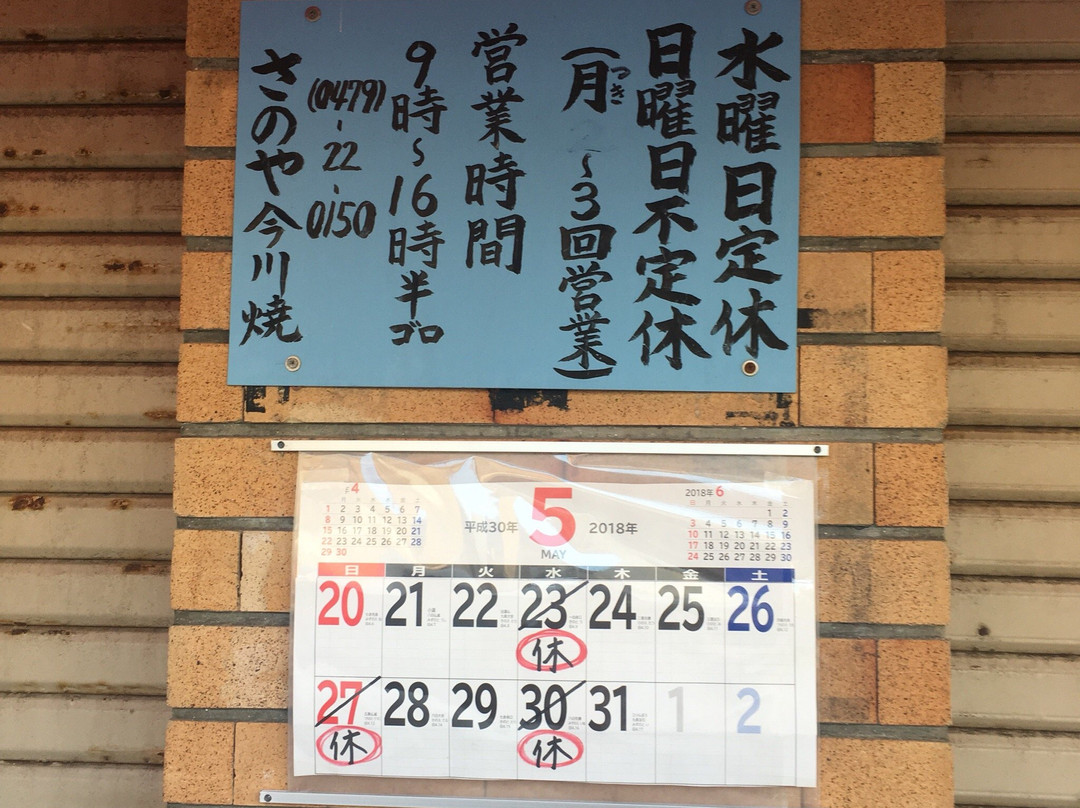 水曜日定休
日曜日不定休
(月つき ～3回営業)
営業時間
9時～16時半ゴロ
(0479)-22-0150
さのや今川焼
4
日 月 火 水 木 金 土
1 2 3 4 5 6 7
8 9 10 11 12 13 14
15 16 17 18 19 20 21
22 23 24 25 26 27 28
29 30
平成30年
5
MAY
2018年
2018年 6
日 月 火 水 木 金 土
1 2
3 4 5 6 7 8 9
10 11 12 13 14 15 16
17 18 19 20 21 22 23
24 25 26 27 28 29 30
日 月 火 水 木 金 土
20 21 22 23 24 25 26
休
27 28 29 30 31 1 2
休 休